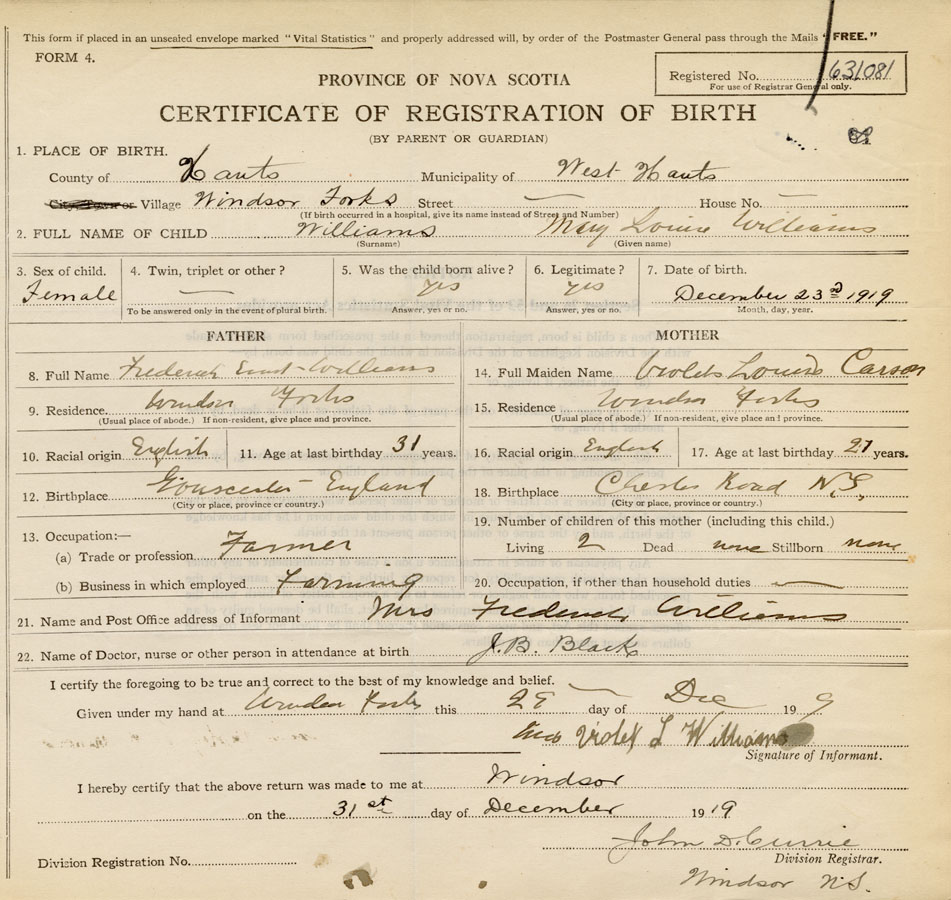 This form if placed in an unsealed envelope marked "Vital Statistics" and properly addressed will, by order of the Postmaster General pass through the Mails "FREE."
FORM 4.
Registered No. 631081
For use of Registrar General only.
PROVINCE OF NOVA SCOTIA
CERTIFICATE OF REGISTRATION OF BIRTH
(BY PARENT OR GUARDIAN)
1. PLACE OF BIRTH.
County of Hants Municipality of West Hants
City, Town or Village Windsor Forks Street — House No. —
(If birth occurred in a hospital, give its name instead of Street and Number)
2. FULL NAME OF CHILD Williams Mary Louise Williams
(Surname) (Given name)
3. Sex of child. 4. Twin, triplet or other? 5. Was the child born alive? 6. Legitimate? 7. Date of birth.
Female — yes yes December 23rd 1919
To be answered only in the event of plural birth. Answer, yes or no. Answer, yes or no. Month, day, year.
FATHER MOTHER
8. Full Name Frederick Ernest Williams 14. Full Maiden Name Violet Louise Carson
9. Residence. Windsor Forks 15. Residence Windsor Forks
(Usual place of abode.) If non-resident, give place and province. (Usual place of abode.) If non-resident, give place and province.
10. Racial origin English 11. Age at last birthday 31 years. 16. Racial origin English 17. Age at last birthday 27 years.
12. Birthplace Gouscester England 18. Birthplace Chester Road N.S.
(City or place, province or country.) (City or place, province or country.)
13. Occupation:— 19. Number of children of this mother (including this child.)
(a) Trade or profession Farmer Living 2 Dead none Stillborn none
(b) Business in which employed Farming 20. Occupation, if other than household duties —
21. Name and Post Office address of Informant Mrs Frederick Williams
22. Name of Doctor, nurse or other person in attendance at birth J.B. Black
I certify the foregoing to be true and correct to the best of my knowledge and belief.
Given under my hand at Windsor Forks this 29 day of Dec 19 9
Mrs Violet L Williams
Signature of Informant.
I hereby certify that the above return was made to me at Windsor
on the 31st day of December 1919
John D. Currie
Division Registrar.
Division Registration No.
Windsor N.S.